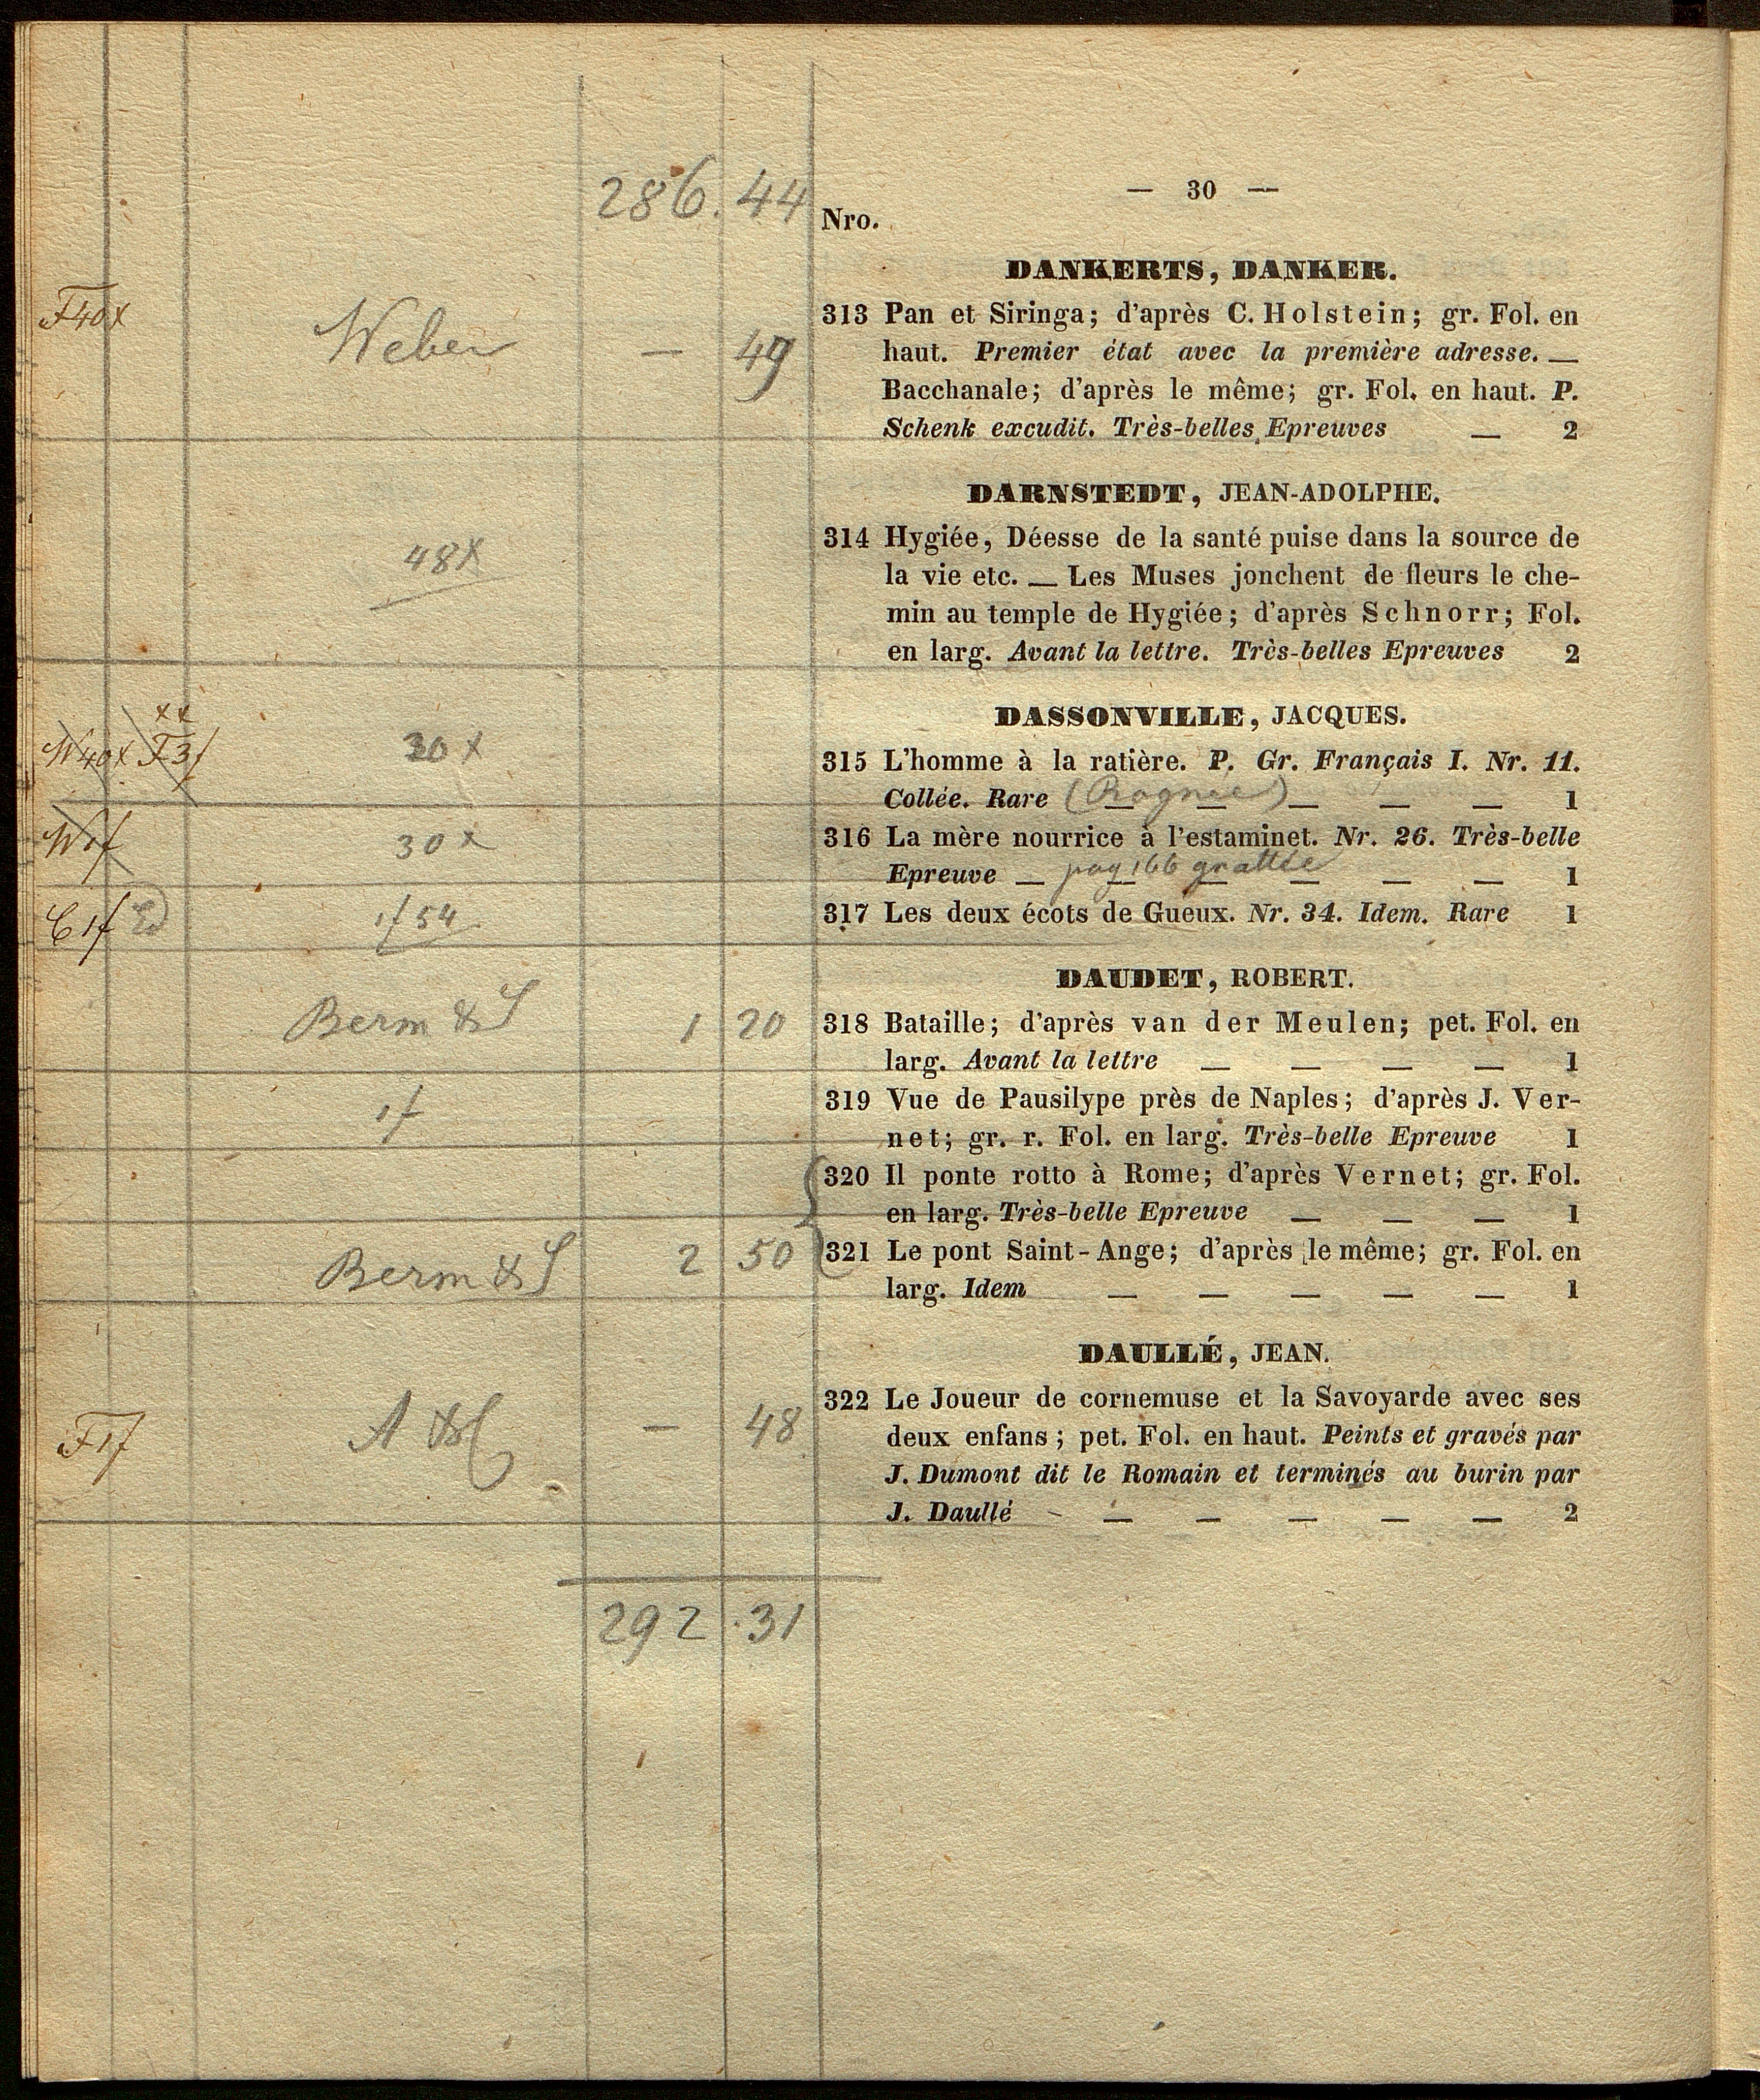 286. 44
— 30 —
Nro.
DANKERTS, DANKER.
F40x Weber — 49
313 Pan et Siringa; d'après C. Holstein; gr. Fol. en
haut. Premier état avec la première adresse. —
Bacchanale; d'après le même; gr. Fol. en haut. P.
Schenk excudit. Très-belles Epreuves — 2
DARNSTEDT, JEAN-ADOLPHE.
48x
314 Hygiée, Déesse de la santé puise dans la source de
la vie etc. — Les Muses jonchent de fleurs le che-
min au temple de Hygiée; d'après Schnorr; Fol.
en larg. Avant la lettre. Très-belles Epreuves 2
DASSONVILLE, JACQUES.
xx
W40x F3f 30x
315 L'homme à la ratière. P. Gr. Français I. Nr. 11.
Collée. Rare (Rognée) — — — 1
W1f 30x
316 La mère nourrice à l'estaminet. Nr. 26. Très-belle
Epreuve — pag 166 grattée — — — 1
C1f 1f54
317 Les deux écots de Gueux. Nr. 34. Idem. Rare 1
DAUDET, ROBERT.
Berm & S 1 20
318 Bataille; d'après van der Meulen; pet. Fol. en
larg. Avant la lettre — — — — 1
1f
319 Vue de Pausilype près de Naples; d'après J. Ver-
net; gr. r. Fol. en larg. Très-belle Epreuve 1
320 Il ponte rotto à Rome; d'après Vernet; gr. Fol.
en larg. Très-belle Epreuve — — — 1
Berm & S 2 50
321 Le pont Saint-Ange; d'après le même; gr. Fol. en
larg. Idem — — — — — 1
DAULLÉ, JEAN.
F1f A & C — 48
322 Le Joueur de cornemuse et la Savoyarde avec ses
deux enfans; pet. Fol. en haut. Peints et gravés par
J. Dumont dit le Romain et terminés au burin par
J. Daullé - — — — — — 2
292.31